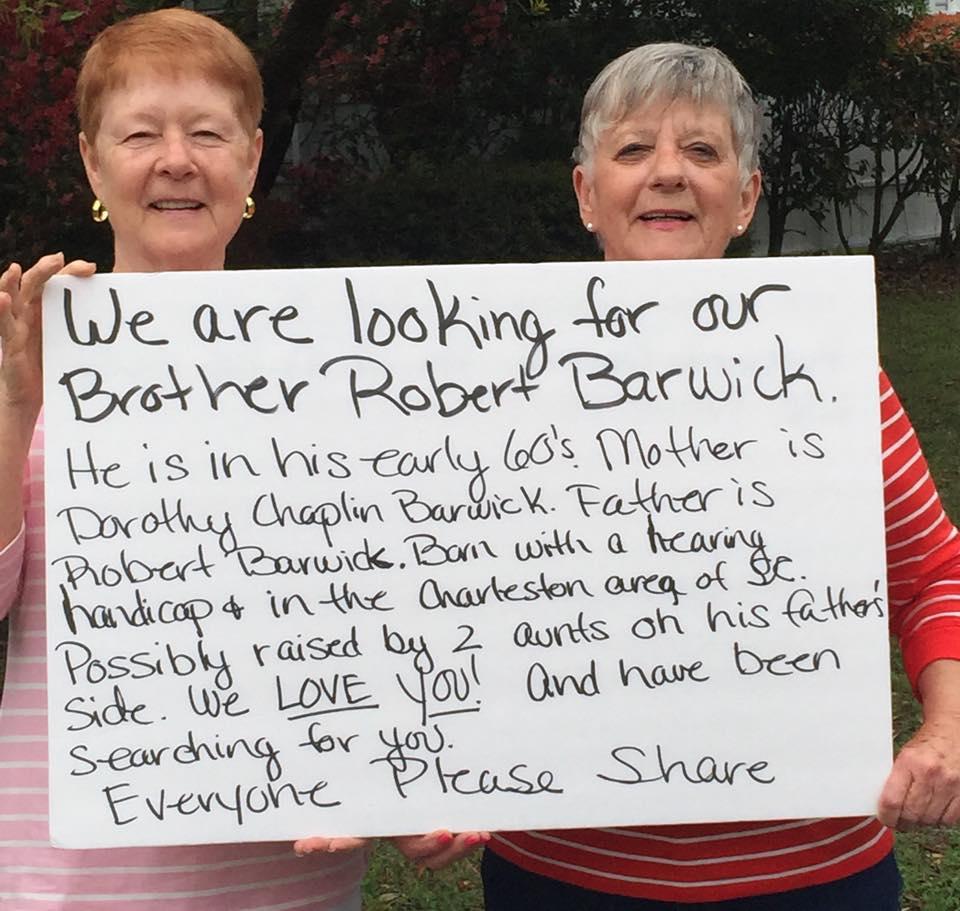 We are looking for our
Brother Robert Barwick.
He is in his early 60's. Mother is
Dorothy Chaplin Barwick. Father is
Robert Barwick. Born with a hearing
handicap & in the Charleston area of SC.
Possibly raised by 2 aunts on his father's
side. We LOVE YOU! And have been
searching for you.
Everyone Please Share